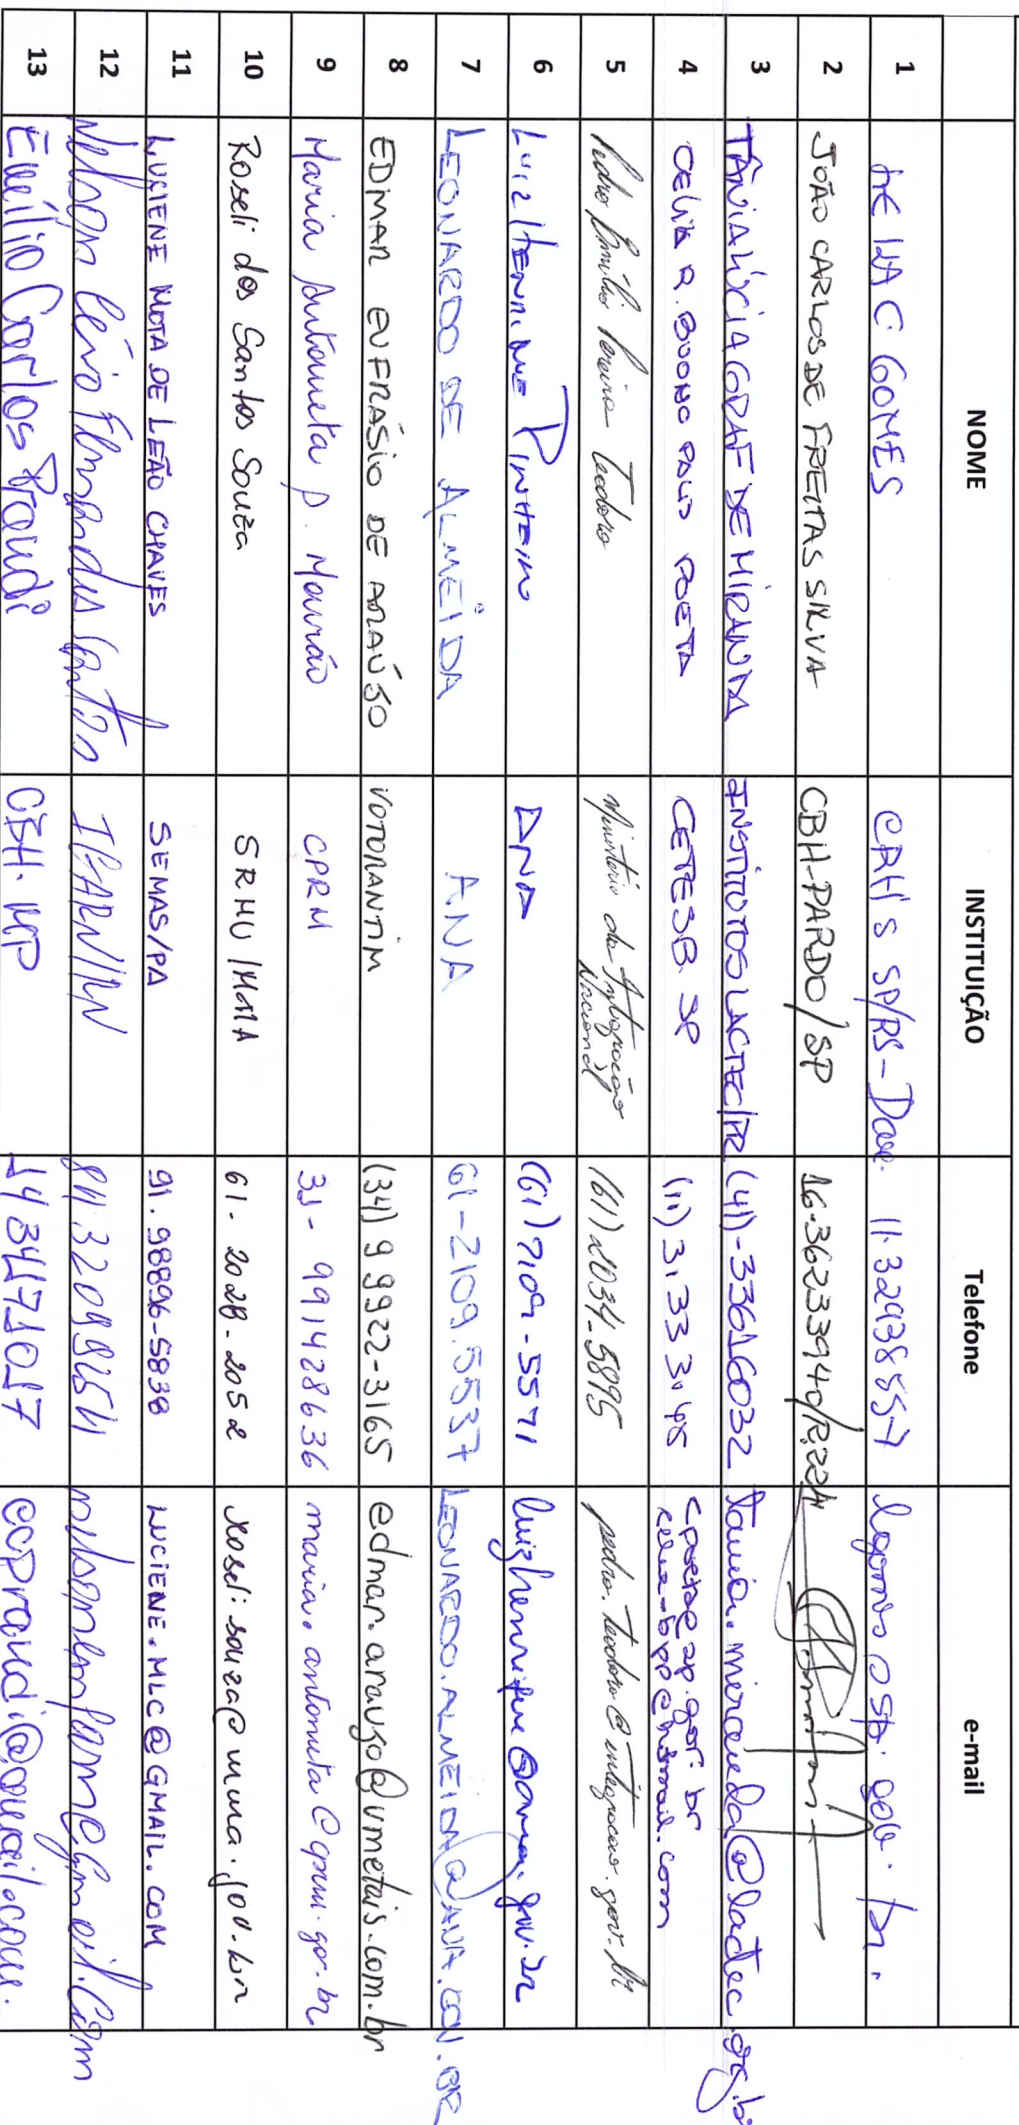 NOME INSTITUIÇÃO Telefone e-mail
1 C GOMES CRH'S SP/RS-
2 JOÃO CARLOS DE FREITAS SILVA CBH-PARDO/SP 16-36233940/
3 TÂNIA LÚCIA GRAF DE MIRANDA INSTITUTOS LACTEC/PR (41)-33616032 tania.miranda@lactec.org.b
4 CELIA R. BUONO PALIS POETA CETESB SP (11) 3133 3048
cpoeta@sp.gov.br
celia-bpp@hotmail.com
5 Pedro Emílio Pereira Teodoro Ministério da Integração (61) 2034-5895 pedro.teodoro@integracao.gov.br
Nacional
6 LUIZ HENRIQUE PINHEIRO ANA (61) 2109-5571 luizhenrique@ana.gov.br
7 LEONARDO DE ALMEIDA ANA 61-2109.5537 LEONARDO.ALMEIDA@ANA.GOV.BR
8 EDMAR EUFRÁSIO DE ARAÚJO VOTORANTIM (34) 9 9922-3165 edmar.araujo@vmetais.com.br
9 Maria Antonieta A. Mourão CPRM 31-991428636 maria.antonieta@cprm.gov.br
10 Roseli dos Santos Souza SRHU/MMA 61-2028-2052 roseli.souza@mma.gov.br
11 LUCIENE MOTA DE LEÃO CHAVES SEMAS/PA 91.98896-5838 LUCIENE.MLC@GMAIL.COM
12 Nelson Césio Fernandes Santos IGARN/RN
13 Emílio Carlos Prandi CBH-MP 14 34171017 ecprandi@gmail.com.